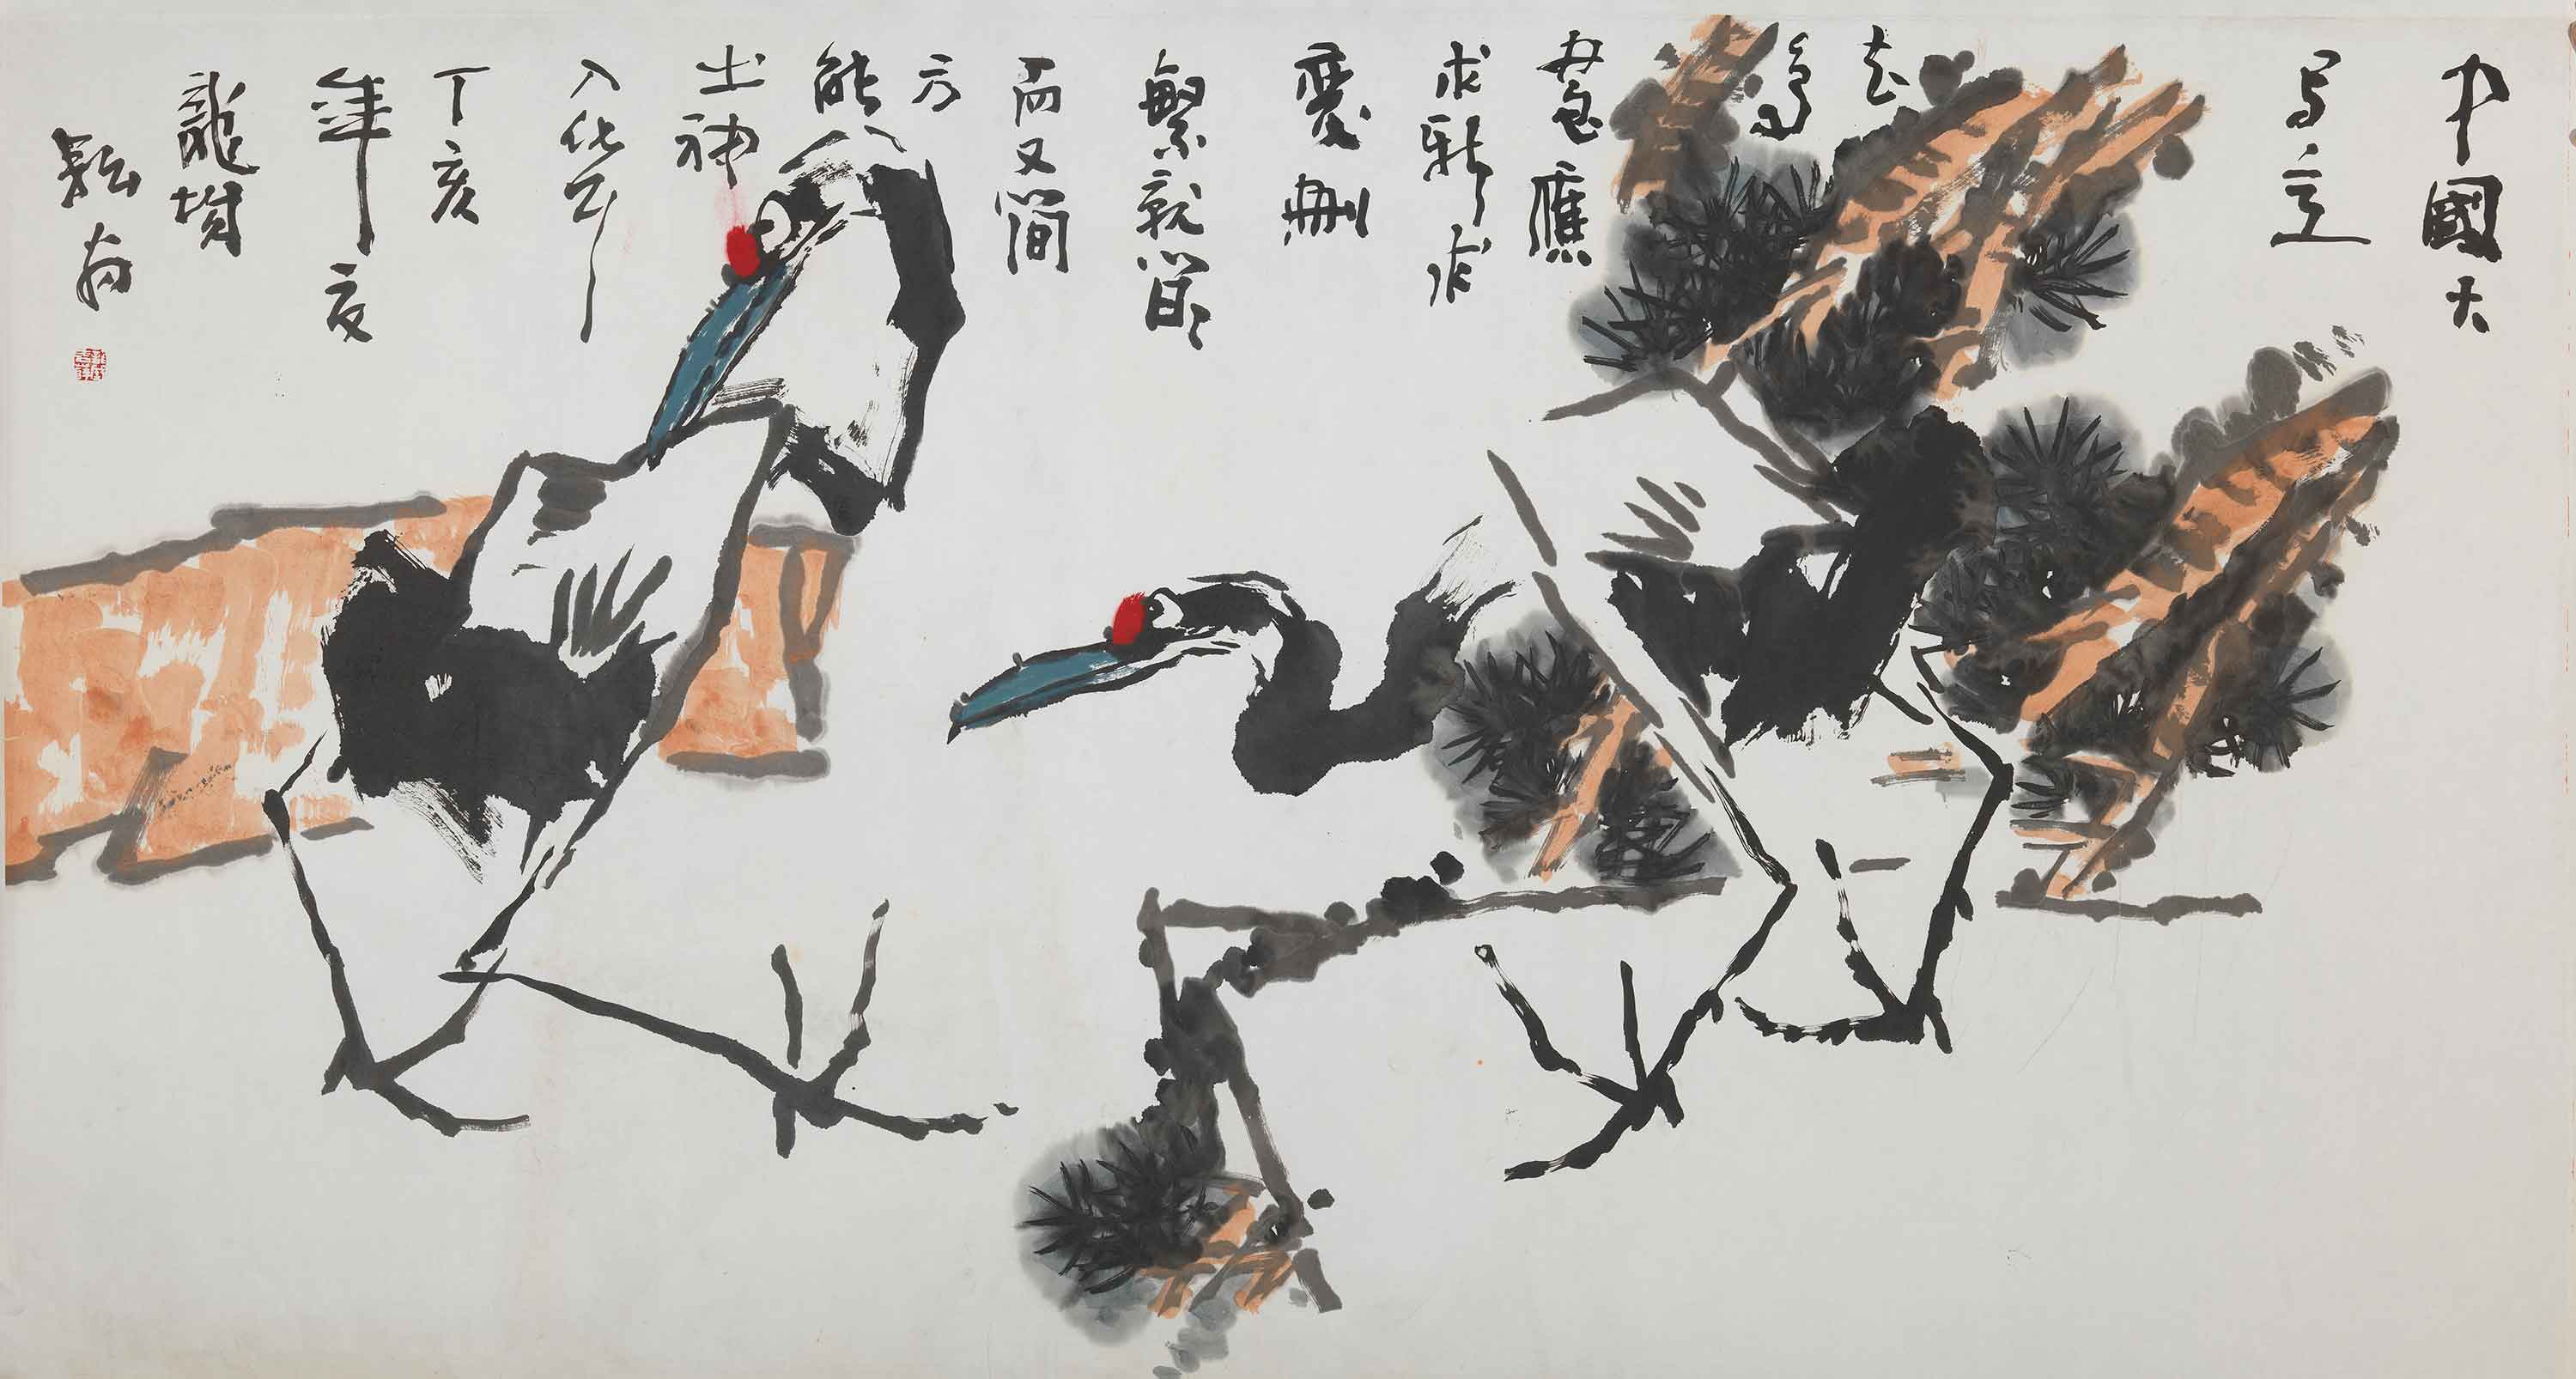 中國大
写意
花
鳥
畫應
求新求
變刪
繁就簡〻
而又簡
方
能
出神
入化
丁亥
年夏
龍